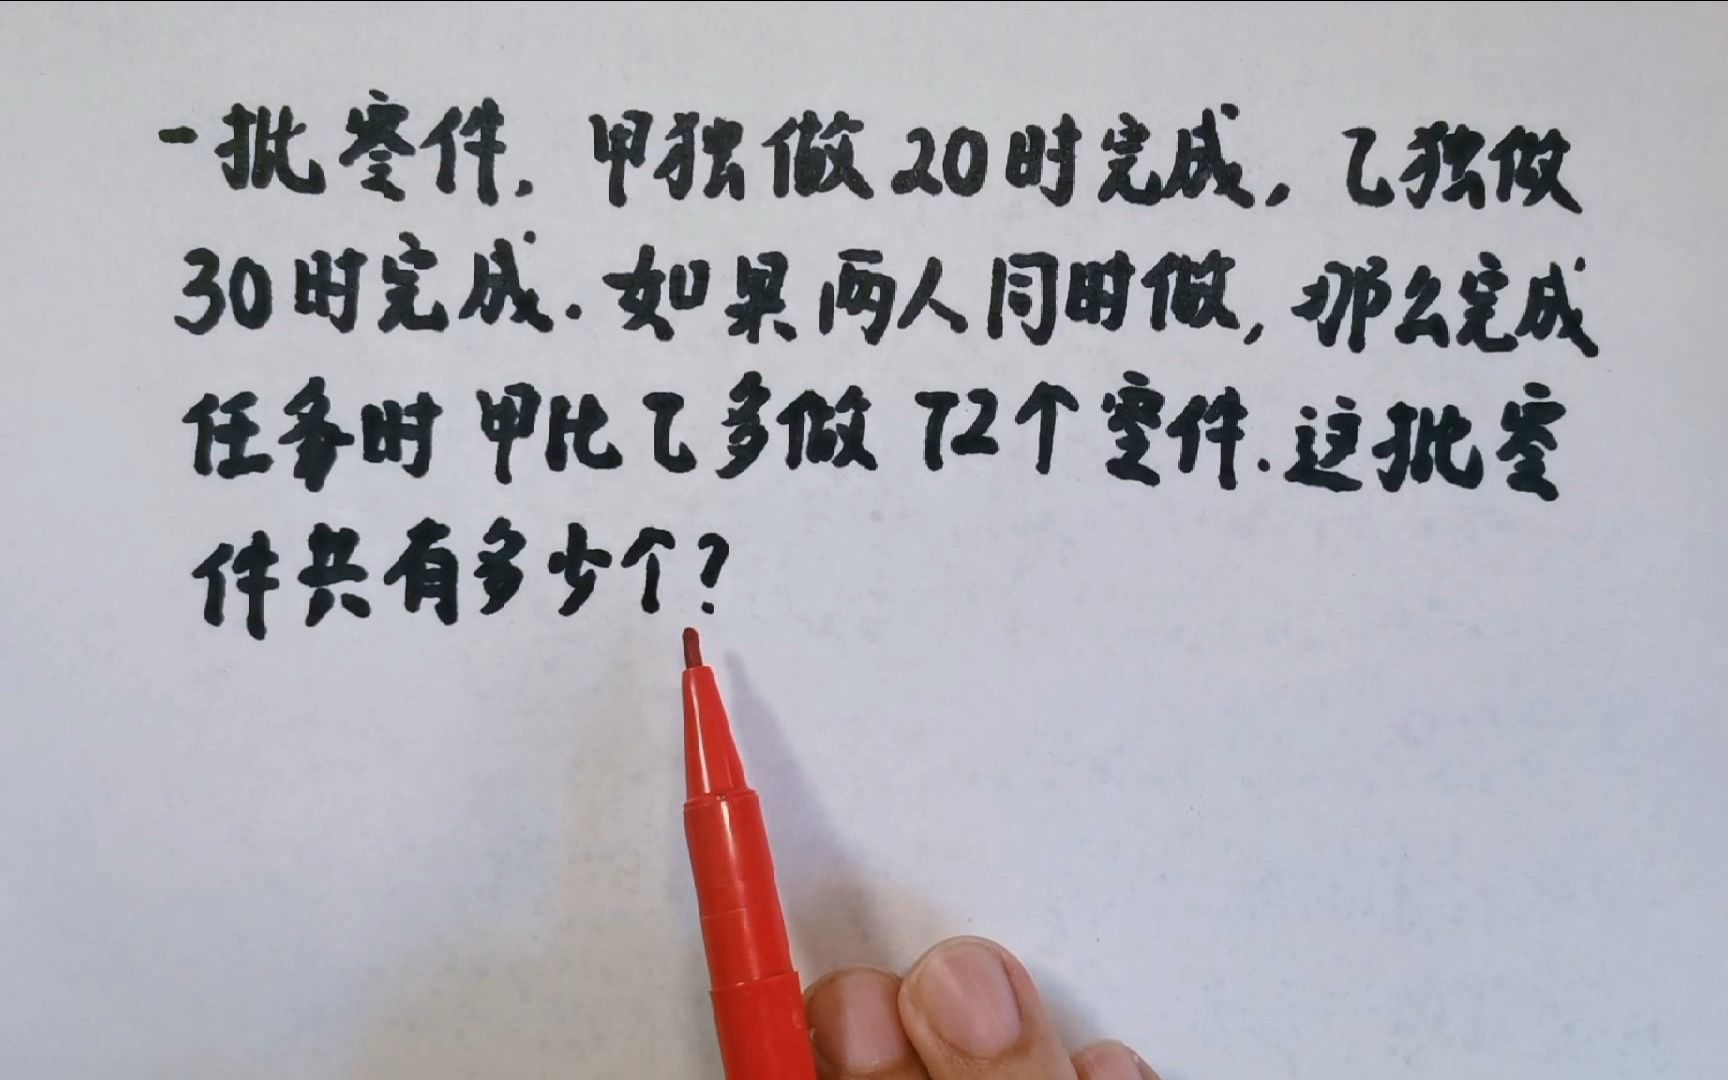 一批零件.甲独做20时完成,乙独做
30时完成.如果两人同时做,那么完成
任务时甲比乙多做72个零件.这批零
件共有多少个?